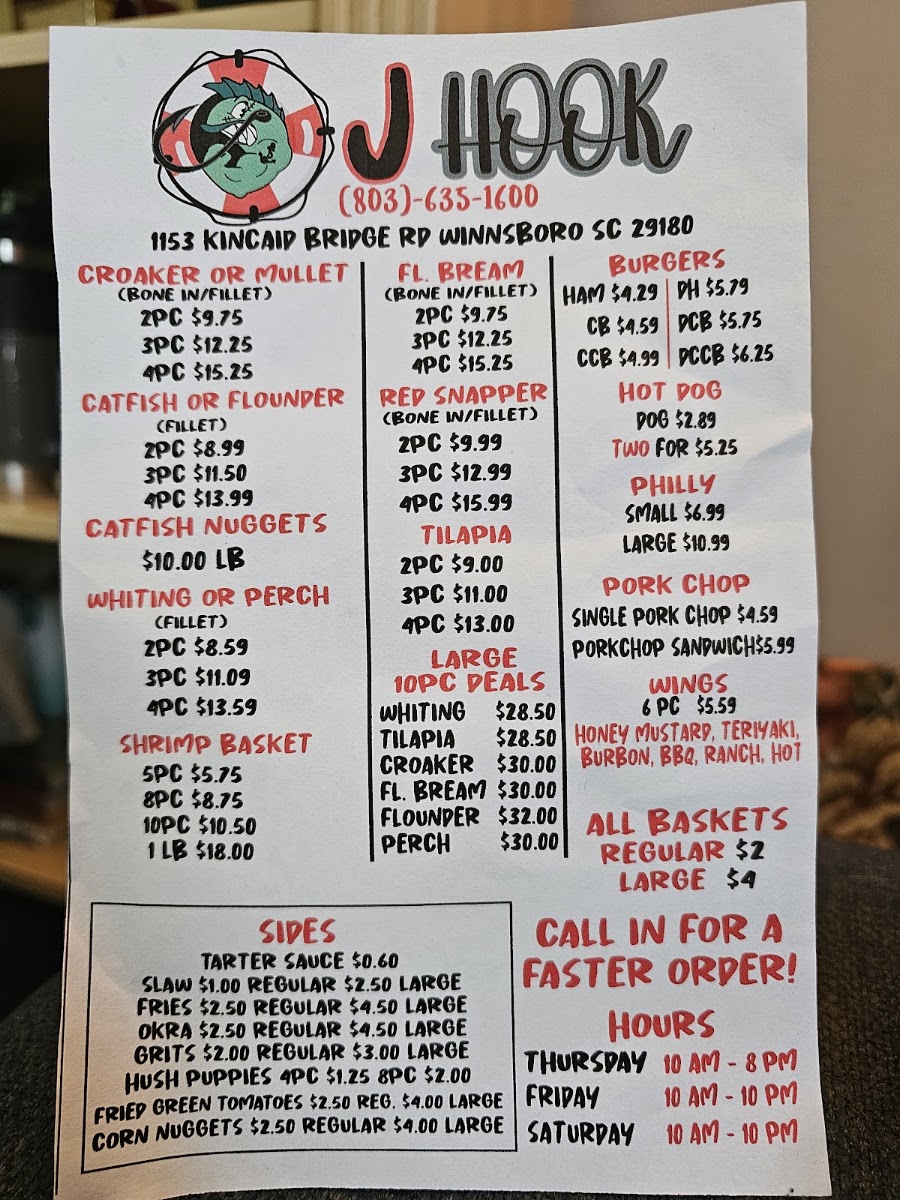 J HOOK
(803)-635-1600
1153 KINCAID BRIDGE RD WINNSBORO SC 29180
CROAKER OR MULLET
(BONE IN/FILLET)
2PC $9.75
3PC $12.25
4PC $15.25
CATFISH OR FLOUNDER
(FILLET)
2PC $8.99
3PC $11.50
4PC $13.99
CATFISH NUGGETS
$10.00 LB
WHITING OR PERCH
(FILLET)
2PC $8.59
3PC $11.09
4PC $13.59
SHRIMP BASKET
5PC $5.75
8PC $8.75
10PC $10.50
1 LB $18.00
FL. BREAM
(BONE IN/FILLET)
2PC $9.75
3PC $12.25
4PC $15.25
RED SNAPPER
(BONE IN/FILLET)
2PC $9.99
3PC $12.99
4PC $15.99
TILAPIA
2PC $9.00
3PC $11.00
4PC $13.00
LARGE
10PC DEALS
WHITING $28.50
TILAPIA $28.50
CROAKER $30.00
FL. BREAM $30.00
FLOUNDER $32.00
PERCH $30.00
BURGERS
HAM $4.29 DH $5.79
CB $4.59 DCB $5.75
CCB $4.99 DCCB $6.25
HOT DOG
DOG $2.89
TWO FOR $5.25
PHILLY
SMALL $6.99
LARGE $10.99
PORK CHOP
SINGLE PORK CHOP $4.59
PORKCHOP SANDWICH $5.99
WINGS
6 PC $5.59
HONEY MUSTARD, TERIYAKI,
BURBON, BBQ, RANCH, HOT
ALL BASKETS
REGULAR $2
LARGE $4
SIDES
TARTER SAUCE $0.60
SLAW $1.00 REGULAR $2.50 LARGE
FRIES $2.50 REGULAR $4.50 LARGE
OKRA $2.50 REGULAR $4.50 LARGE
GRITS $2.00 REGULAR $3.00 LARGE
HUSH PUPPIES 4PC $1.25 8PC $2.00
FRIED GREEN TOMATOES $2.50 REG. $4.00 LARGE
CORN NUGGETS $2.50 REGULAR $4.00 LARGE
CALL IN FOR A
FASTER ORDER!
HOURS
THURSDAY 10 AM - 8 PM
FRIDAY 10 AM - 10 PM
SATURDAY 10 AM - 10 PM